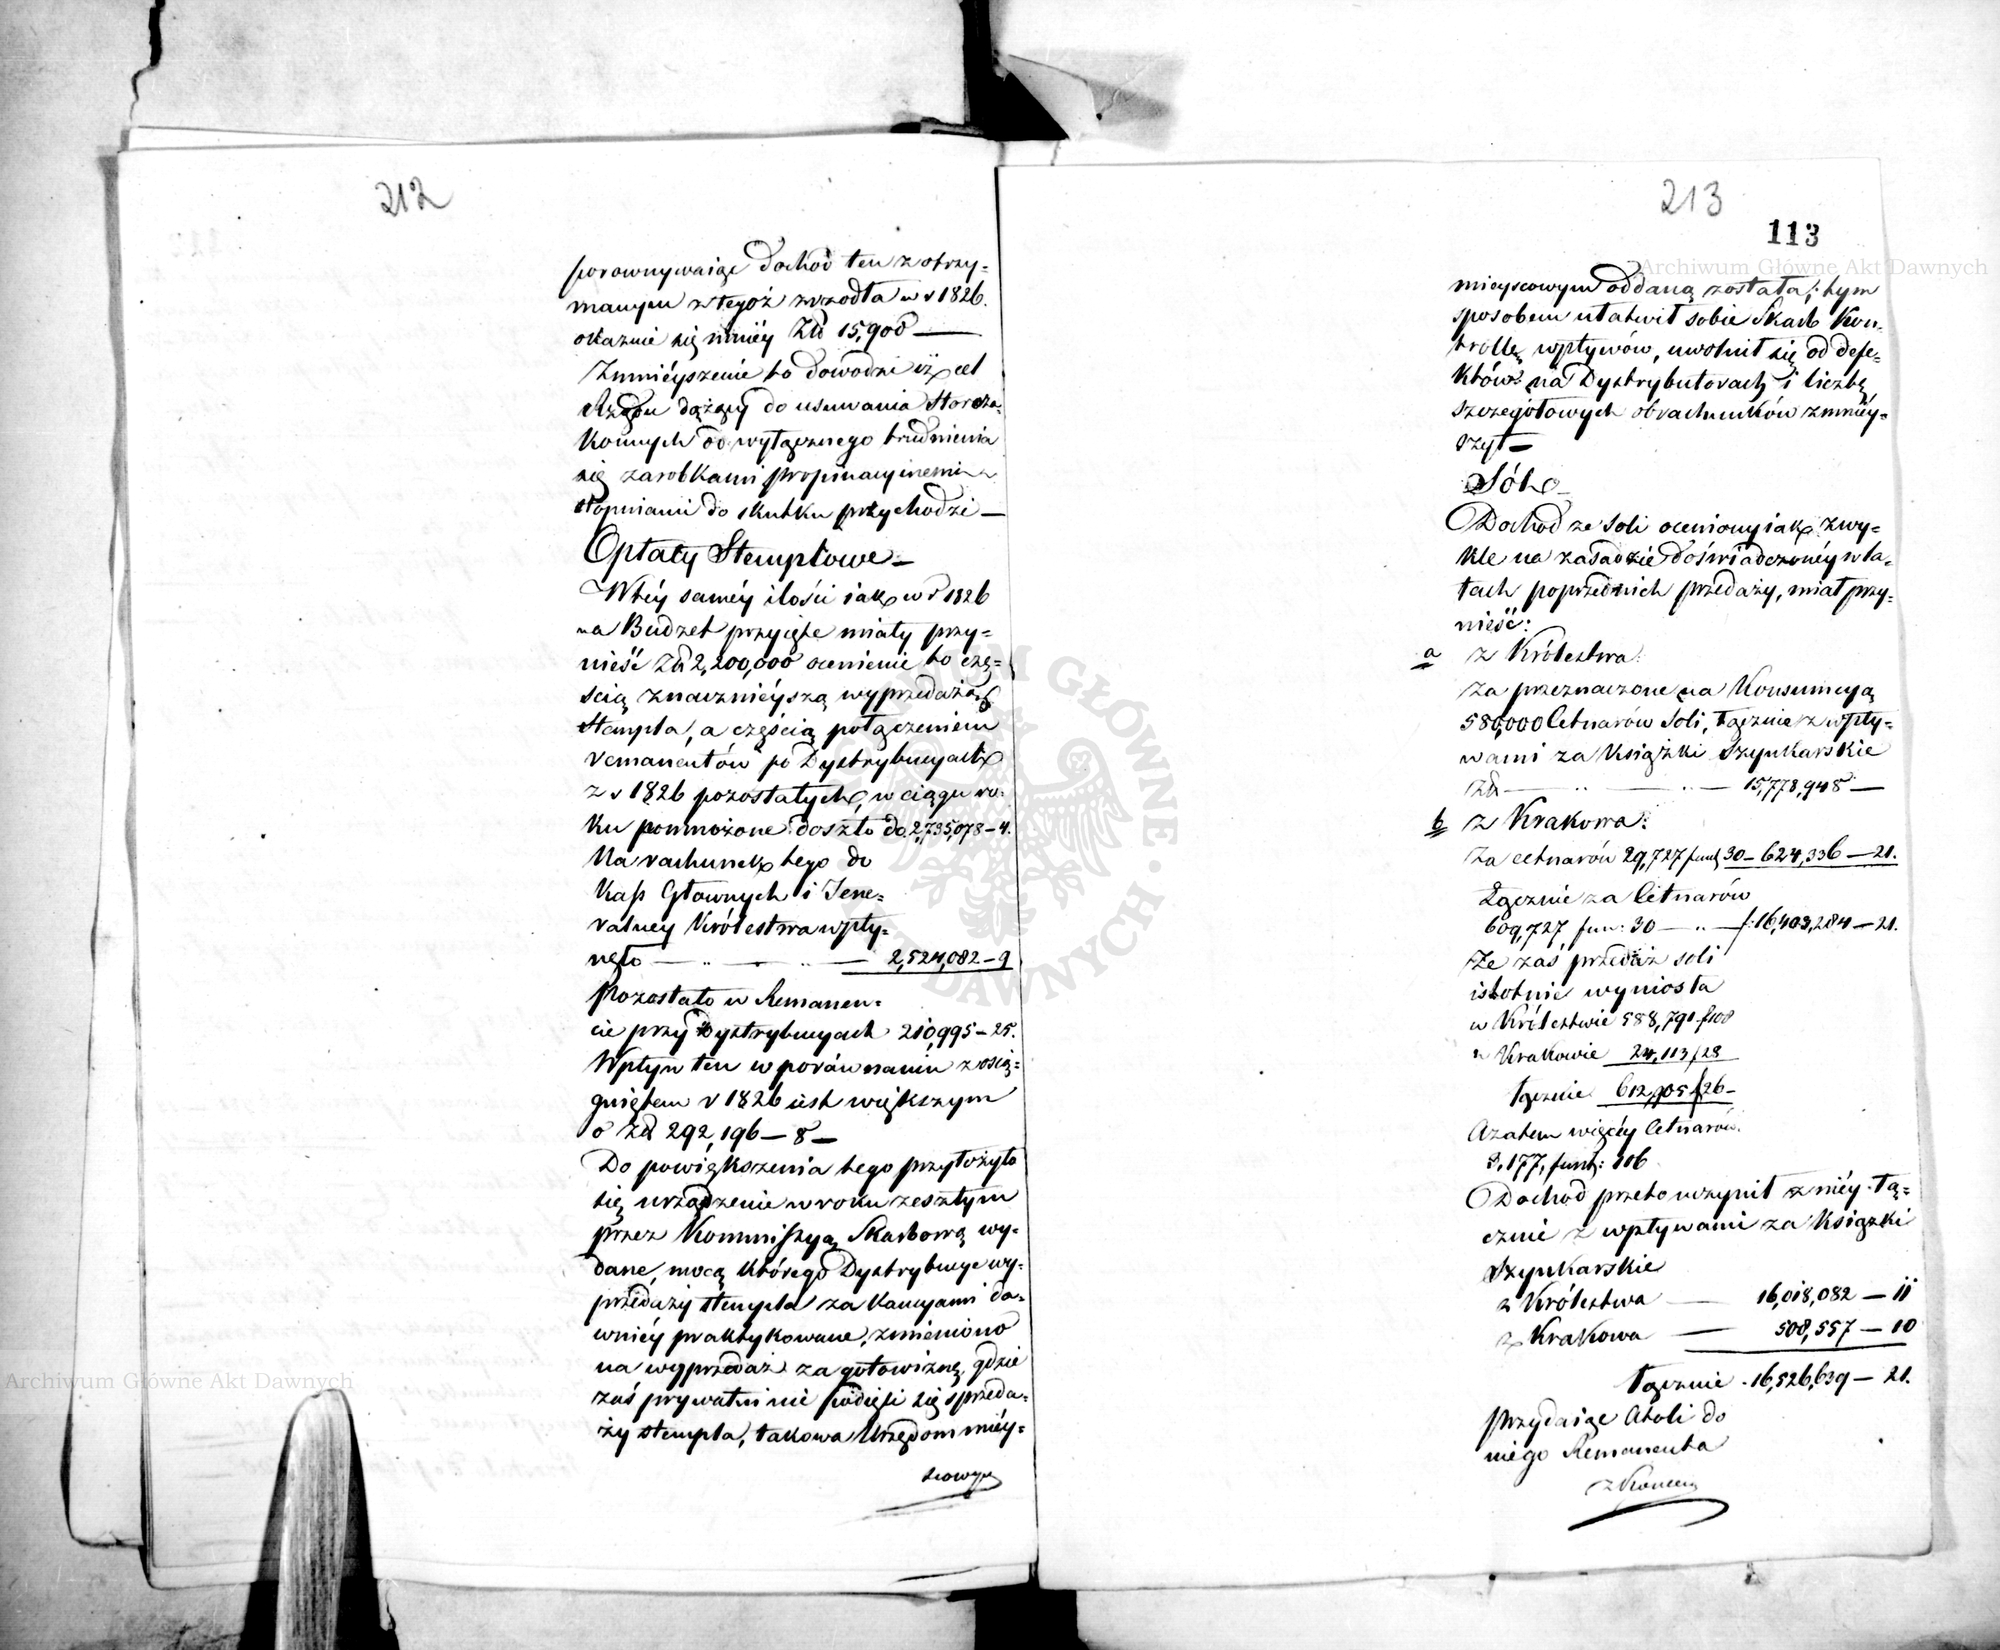 212
porownywaiąc dochód ten z otrzy=
manym z tegoż źrzodła w r 1826.
okaznie się mniéy Zł 15,908 —
Zmniéyszenie to dowodzi iż cel
Rządu dążący do usuwania Starоza-
konnych od wyłącznego trudnienia
się zarobkami propinacyinemi
stopniami do skutku przychodzi —
Opłaty Stemplowe —
W téy saméy ilości iak w r 1826
na Budżet przyięte miały przy=
nieść Zł 2,200,000 ocenienie to czę=
ścią znacznieyszą wyprzedażą
Stempla, a częścią połączeniem
remanentów po Dystrybucyach
z r 1826 pozostałych, w ciągu ro-
ku pomnożone doszło do 2,735,078 — 4.
Na rachunek tego do
Kass Głownych i Jene=
ralney Królestwa wpły=
nęło — „ — „ — 2,524,082 — 9
Pozostało w Remanen=
cie przy Dystrybucyach 210,995 — 25.
Wpływ ten w porównaniu z osią=
gniętem r 1826 iest większym
o Zł 292,196 — 8 —
Do powiększenia tego przyłożyło
się urządzenie w roku zeszłym
przez Kommissyą Skarbową wy=
dane, mocą którego Dystrybucye wy=
przedaży stempla za kaucyami da=
wniéy praktykowane, zmieniono
na wyprzedaż za gotowiznę, gdzie
zaś prywatni nie podięli się sprzeda=
ży stempla, takowa Urzędom miéy=
scowym
213
113
mieyscowym oddaną została; tym
sposobem ułatwił sobie Skarb Kon=
trollę wpływów, uwolnił się od defe=
któw na Dystrybutorach i liczbę
szczegółowych obrachunków zmniéy=
szył —
Sól —
Dochod ze Soli oceniony iak zwy=
kle na zasadzie doświadczonéy w la=
tach poprzednich przedaży, miał przy=
nieść:
a z Królestwa:
za przeznaczone na Konsumcyą
580,000 Cetnarów Soli, łącznie z wpły=
wami za Książki Szynkarskie
Zł — „ — „ — 15,778,948 —
b z Krakowa:
za cetnarów 29,727 funt 30 — 624,336 — 21.
Łącznie za Cetnarów
609,727 fun: 30 — „ — f. 16,403,284 — 21.
Że zaś przedaż soli
istotnie wyniosła
w Królestwie 588,791 f 108
w Krakowie 24,113 f 28
łącznie 612,905 f 26 —
A zatem więcéy Cetnarów
3,177, funt: 106
Dochod przeto uczynił z niéy łą=
cznie z wpływami za Książki
Szynkarskie
z Królestwa — 16,018,082 — 11
z Krakowa — 508,557 — 10
łącznie 16,526,639 — 21.
Przydaiąc Atoli do
niego Remanenta
z Końcem
Archiwum Główne Akt Dawnych
Archiwum Główne Akt Dawnych
ARCHIWUM GŁÓWNE AKT DAWNYCH